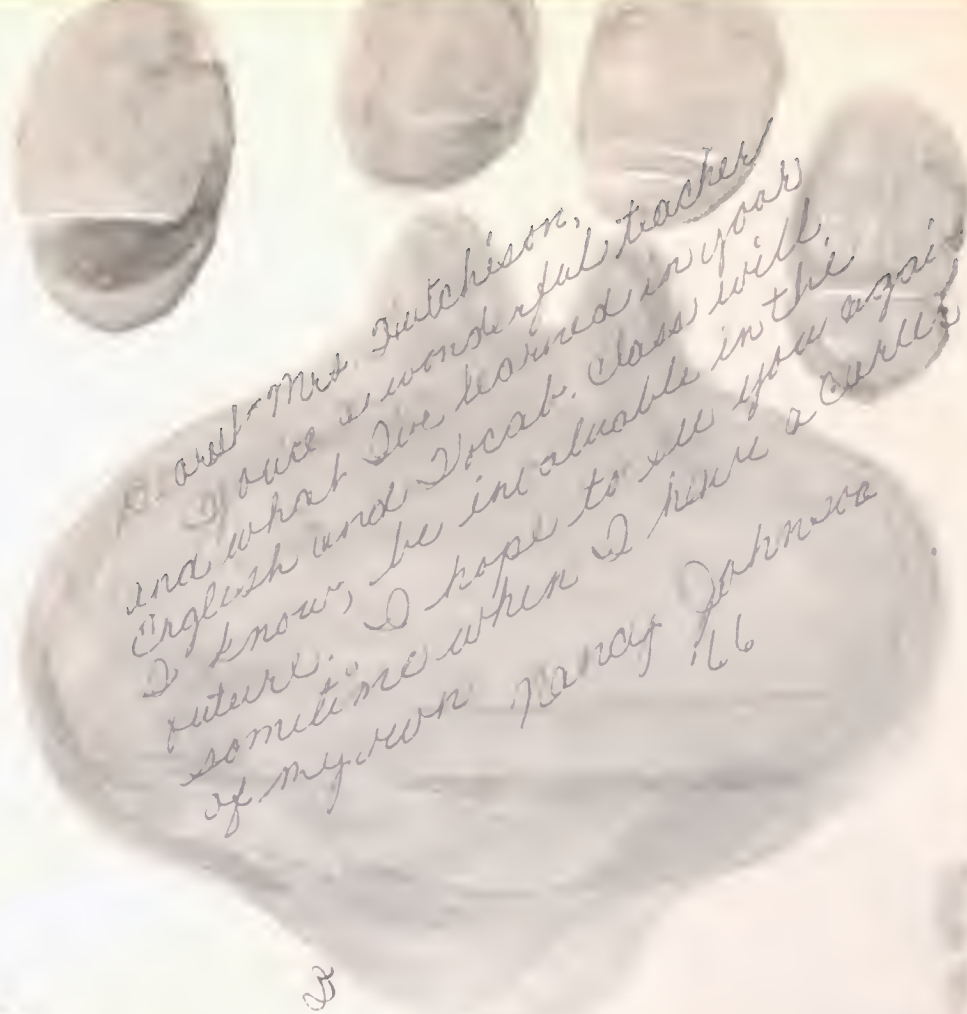 Dearest Mrs. Hutchison,
You're a wonderful teacher
and what I've learned in your
English and Vocab. class will,
I know, be invaluable in the
future. I hope to see you again
sometime when I have a
of my own Nancy Johnson
'66
3